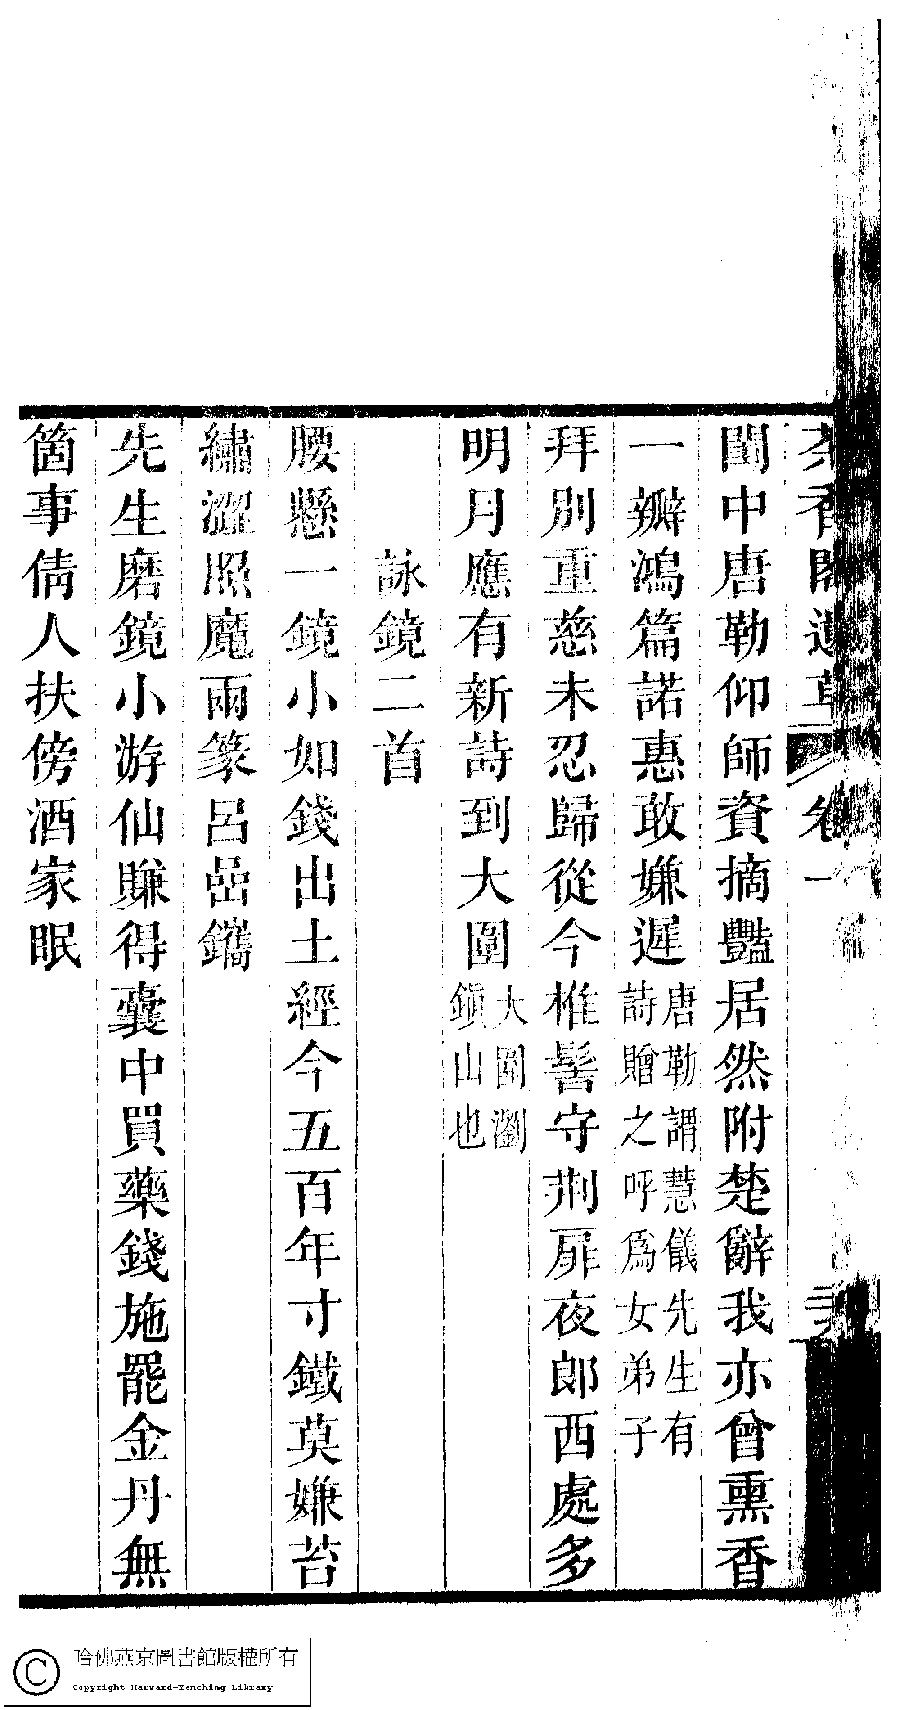 茶香閣遺草 卷一
閨中唐勒仰師資摘豔居然附楚辭我亦曾熏香
一瓣鴻篇諾惠敢嫌遲唐勒謂慧儀先生有詩贈之呼爲女弟子
拜別重慈未忍歸從今椎髻守荆扉夜郎西處多
明月應有新詩到大圍大圍瀏鎭山也
詠鏡二首
腰懸一鏡小如錢出土經今五百年寸鐵莫嫌苔
繡澀照魔兩篆呂嵒鐫
先生磨鏡小游仙賺得囊中買藥錢施罷金丹無
箇事倩人扶傍酒家眠
哈佛燕京圖書館版權所有
Copyright Harvard-Yenching Library